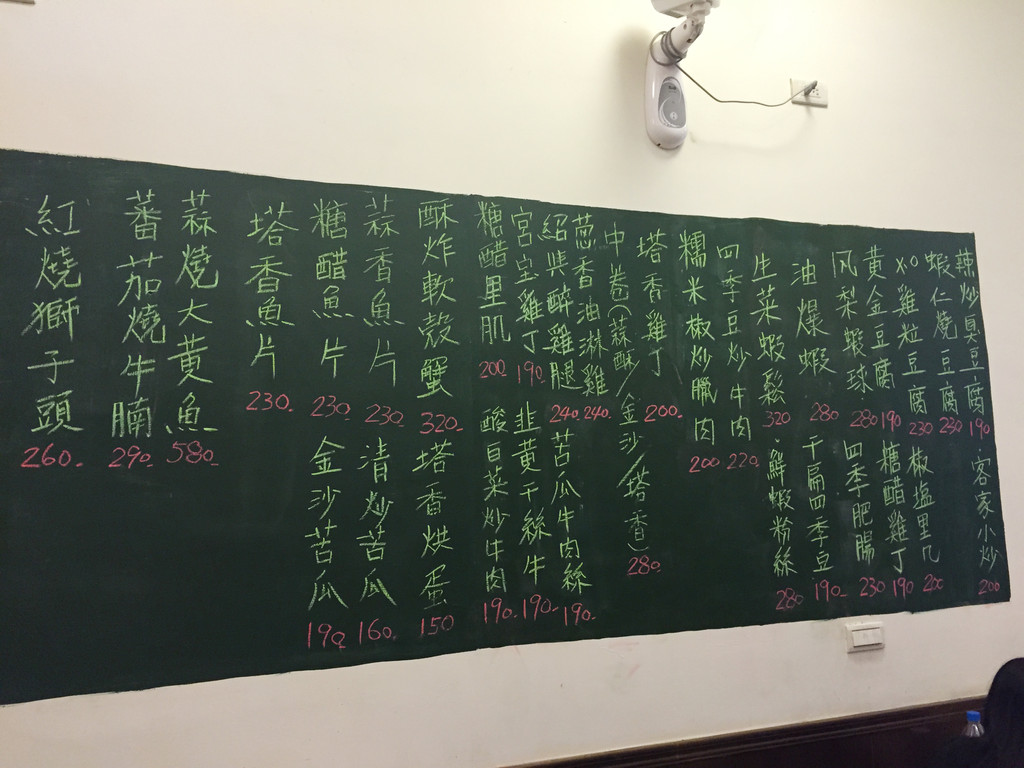 辣炒臭豆腐 190
客家小炒 200
蝦仁燒豆腐 230
XO雞粒豆腐 230
椒塩里几 200
黃金豆腐 190
糖醋雞丁 190
风梨蝦球 280
四季肥腸 230
油爆蝦 280
干扁四季豆 190.
生菜蝦鬆 320
鮮蝦粉絲 280
四季豆炒牛肉 220
糯米椒炒臘肉 200
塔香雞丁 200.
中卷(蒜酥/金沙/塔香) 280
蔥香油淋雞 240.
紹興醉雞腿 240
苦瓜牛肉絲 190.
宮宝雞丁 190.
韭黃干絲牛 190-
糖醋里肌 200.
酸白菜炒牛肉 190.
酥炸軟殼蟹 320.
塔香烘蛋 150
蒜香魚片 230.
清炒苦瓜 160.
糖醋魚片 230.
金沙苦瓜 190
塔香魚片 230.
蒜燒大黃魚 580.
蕃茄燒牛腩 290.
紅燒獅子頭 260.